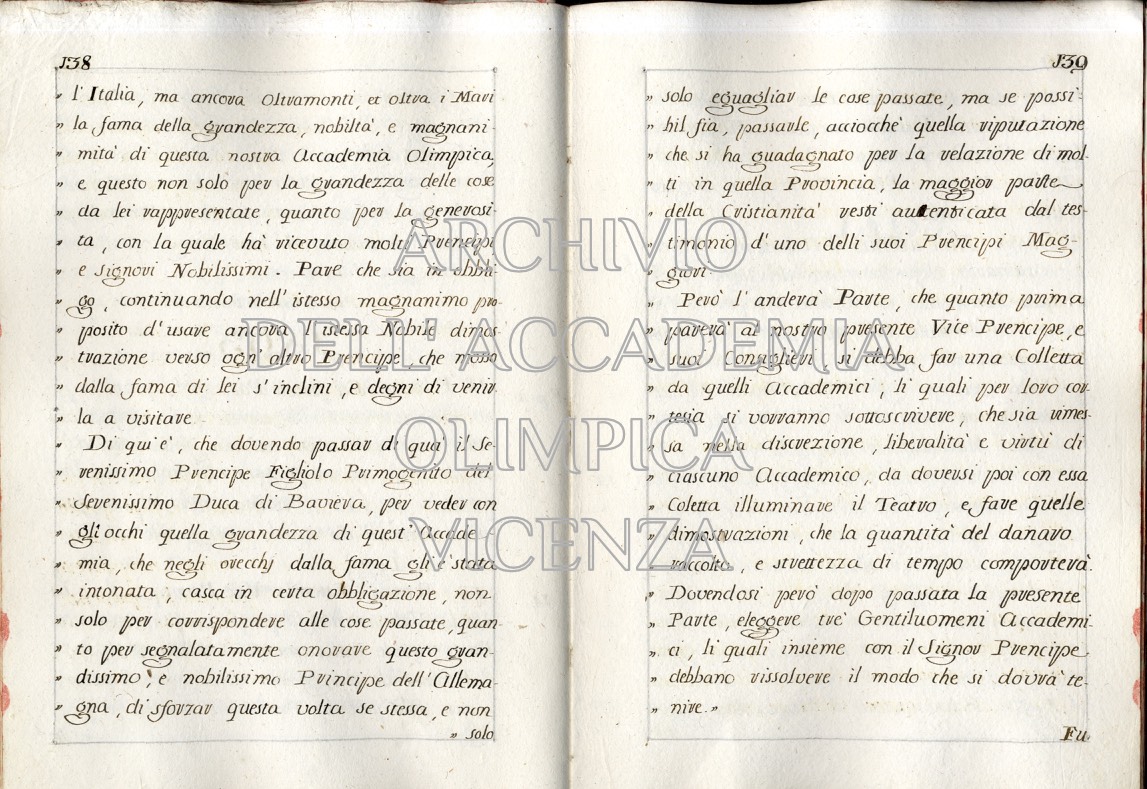 138
" l'Italia, ma ancora oltramonti, et oltra i Mari
" la fama della grandezza, nobiltà, e magnani-
" mità di questa nostra Accademia Olimpica,
" e questo non solo per la grandezza delle cose
" da lei rappresentate, quanto per la generosi-
" ta, con la quale hà ricevuto molti Prencipi
" e Signori Nobilissimi. Pare che sia in obbli-
" go, continuando nell'istesso magnanimo pro-
" posito d'usare ancora l'istessa Nobile dimos-
" trazione verso ogn'altro Prencipe, che mosso
" dalla fama di lei s'inclini, e degni di venir-
" la a visitare.
" Di qui è, che dovendo passar di quà il Se-
" renissimo Prencipe Figliolo Primogenito del
" Serenissimo Duca di Baviera, per veder con
" gli occhi quella grandezza di quest'Accade-
" mia, che negli orecchj dalla fama gli è stata
" intonata, casca in certa obbligazione, non
" solo per corrispondere alle cose passate, quan-
" to per segnalatamente onorare questo gran-
" dissimo, e nobilissimo Principe dell'Allema-
" gna, di sforzar questa volta se stessa, e non
" solo
139
" solo eguagliar le cose passate, ma se possi-
" bil fia, passarle, acciocchè quella riputazione
" che si ha guadagnato per la relazione di mol-
" ti in quella Provincia, la maggior parte
" della Cristianità resti autenticata dal tes-
" timonio d'uno delli suoi Prencipi Mag-
" giori.
" Però l'anderà Parte, che quanto prima
" parerà al nostro presente Vice Prencipe, e
" suoi Consiglieri, si debba far una Colletta
" da quelli Accademici, li quali per loro cor-
" tesia si vorranno sottoscrivere, che sia rimes-
" sa nella discrezione, liberalità e virtù di
" ciascuno Accademico, da doversi poi con essa
" Coletta illuminare il Teatro, e fare quelle
" dimostrazioni, che la quantità del danaro
" raccolto, e strettezza di tempo comporterà.
" Dovendosi però dopo passata la presente
" Parte, eleggere trè Gentiluomeni Accademi-
" ci, li quali insieme con il Signor Prencipe
" debbano rissolvere il modo che si dovrà te-
" nire. "
Fu
ARCHIVIO
DELL'ACCADEMIA
OLIMPICA
VICENZA